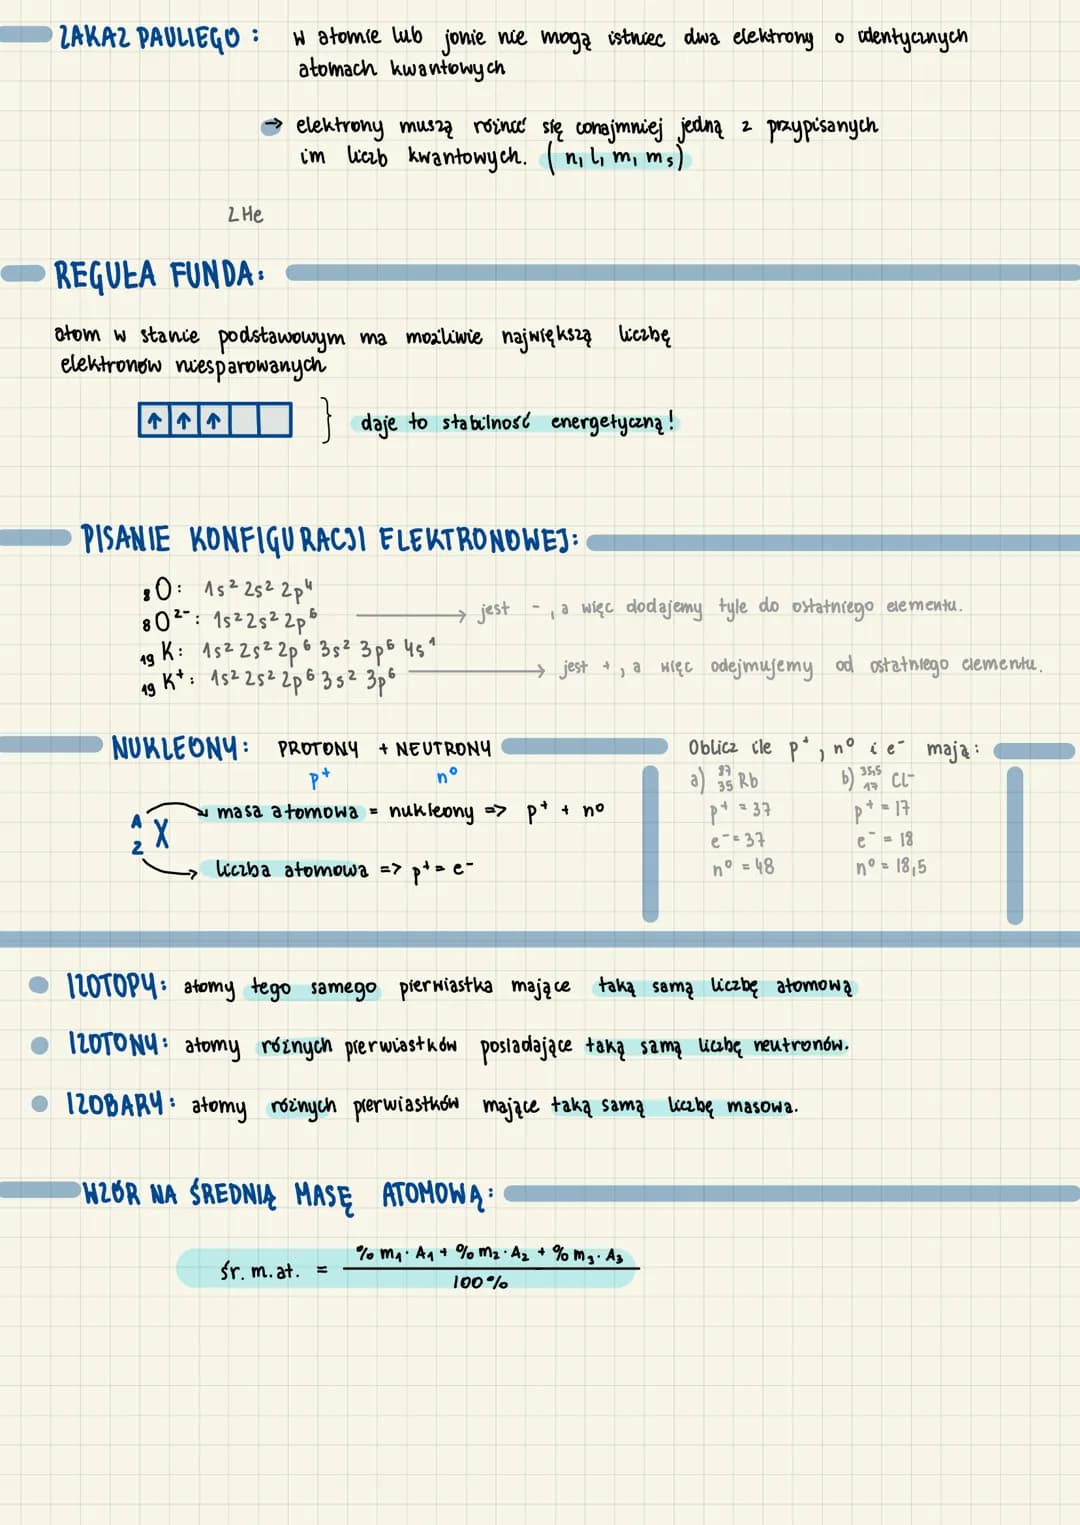 ZAKAZ PAULIEGO : w atomie lub jonie nie mogą istnieć dwa elektrony o identycznych
atomach kwantowych
→ elektrony muszą różnić się conajmniej jedną z przypisanych
im liczb kwantowych. (n, l, m, ms)
2He
REGUŁA FUNDA:
atom w stanie podstawowym ma możliwie największą liczbę
elektronów niesparowanych
↑ ↑ ↑ } daje to stabilność energetyczną!
PISANIE KONFIGURACJI ELEKTRONOWEJ:
₈O: 1s² 2s² 2p⁴
₈O²⁻: 1s² 2s² 2p⁶ → jest -, a więc dodajemy tyle do ostatniego elementu.
₁₉K: 1s² 2s² 2p⁶ 3s² 3p⁶ 4s¹
₁₉K⁺: 1s² 2s² 2p⁶ 3s² 3p⁶ → jest +, a więc odejmujemy od ostatniego elementu.
NUKLEONY: PROTONY + NEUTRONY
p⁺ n⁰
A
Z X
masa atomowa = nukleony => p⁺ + n⁰
liczba atomowa => p⁺ = e⁻
Oblicz ile p⁺, n⁰ i e⁻ mają:
a) ⁸⁷₃₅Rb b) ³⁵·⁵₁₇Cl⁻
p⁺ = 37 p⁺ = 17
e⁻ = 37 e⁻ = 18
n⁰ = 48 n⁰ = 18,5
IZOTOPY: atomy tego samego pierwiastka mające taką samą liczbę atomową
IZOTONY: atomy różnych pierwiastków posiadające taką samą liczbę neutronów.
IZOBARY: atomy różnych pierwiastków mające taką samą liczbę masowa.
WZÓR NA ŚREDNIĄ MASĘ ATOMOWĄ:
śr. m.at. = % m₁ · A₁ + % m₂ · A₂ + % m₃ · A₃
100%